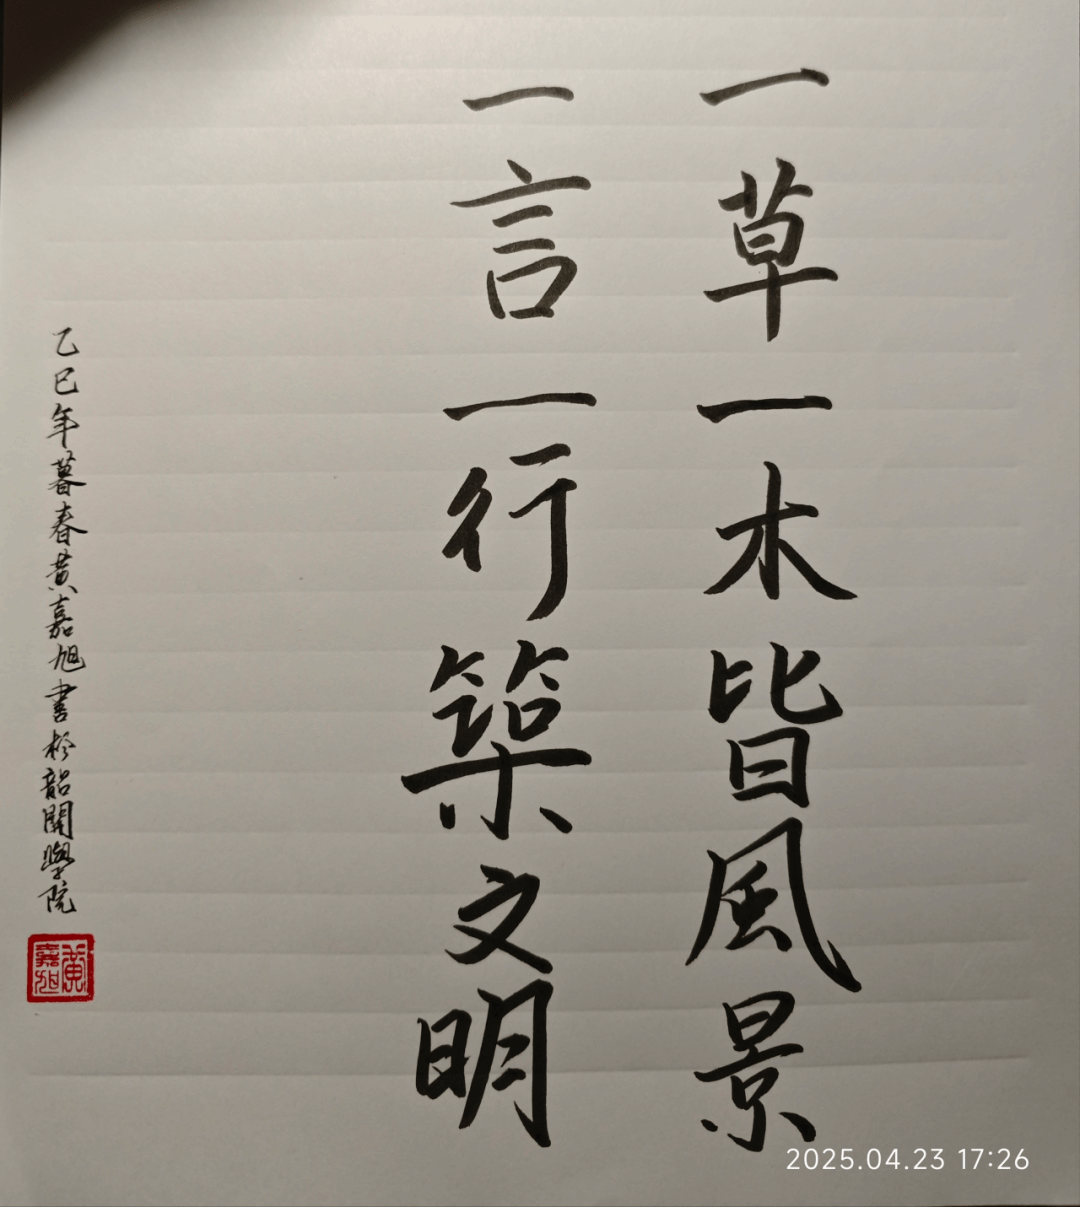 一草一木皆風景
一言一行築文明
乙巳年暮春黄嘉旭書於韶關學院
黄嘉旭
2025.04.23 17:26